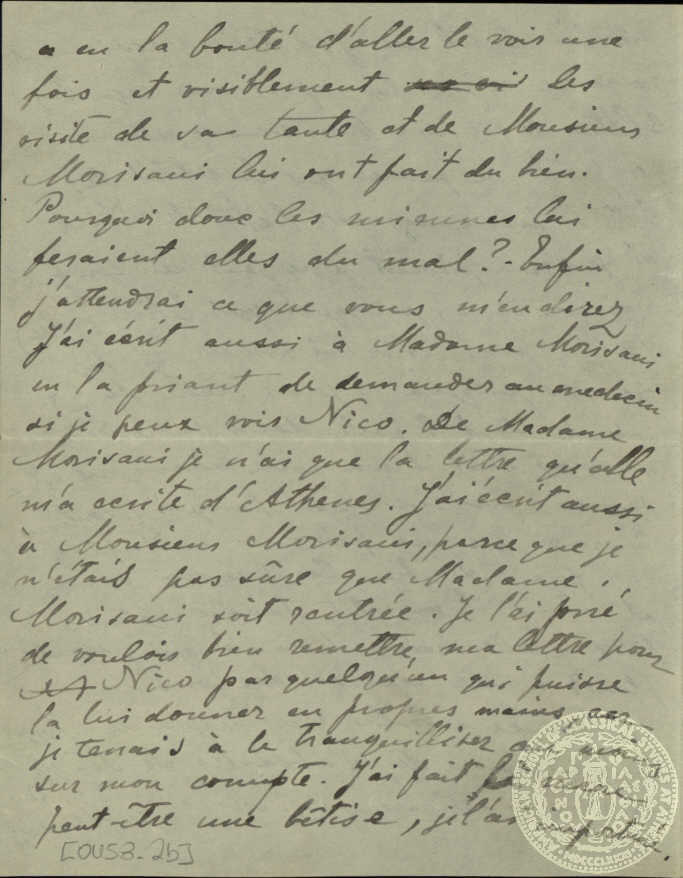 a eu la bonté d'aller le voir une
fois et visiblement les
visite de sa tante et de Monsieur
Morisani lui ont fait du bien.
Pourquoi donc les miennes lui
feraient elles du mal? - Enfin
j'attendrai ce que vous m'en direz
J'ai écrit aussi à Madame Morisani
en la priant de demander au medecin
si je peux voir Nico. De Madame
Morisani je n'ai que la lettre qu'elle
m'a ecrite d'Athenes. J'ai écrit aussi
à Monsieur Morisani, parce que je
n'étais pas sûre que Madame
Morisani soit rentrée. Je l'ai prié
de vouloir bien remettre ma lettre pour
Nico par quelqu'un qui puisse
la lui donner en propres mains car
je tenais à le tranquilliser au moins
sur mon compte. J'ai fait
peut-être une bêtise, je l'ai
[OUSZ-2b]